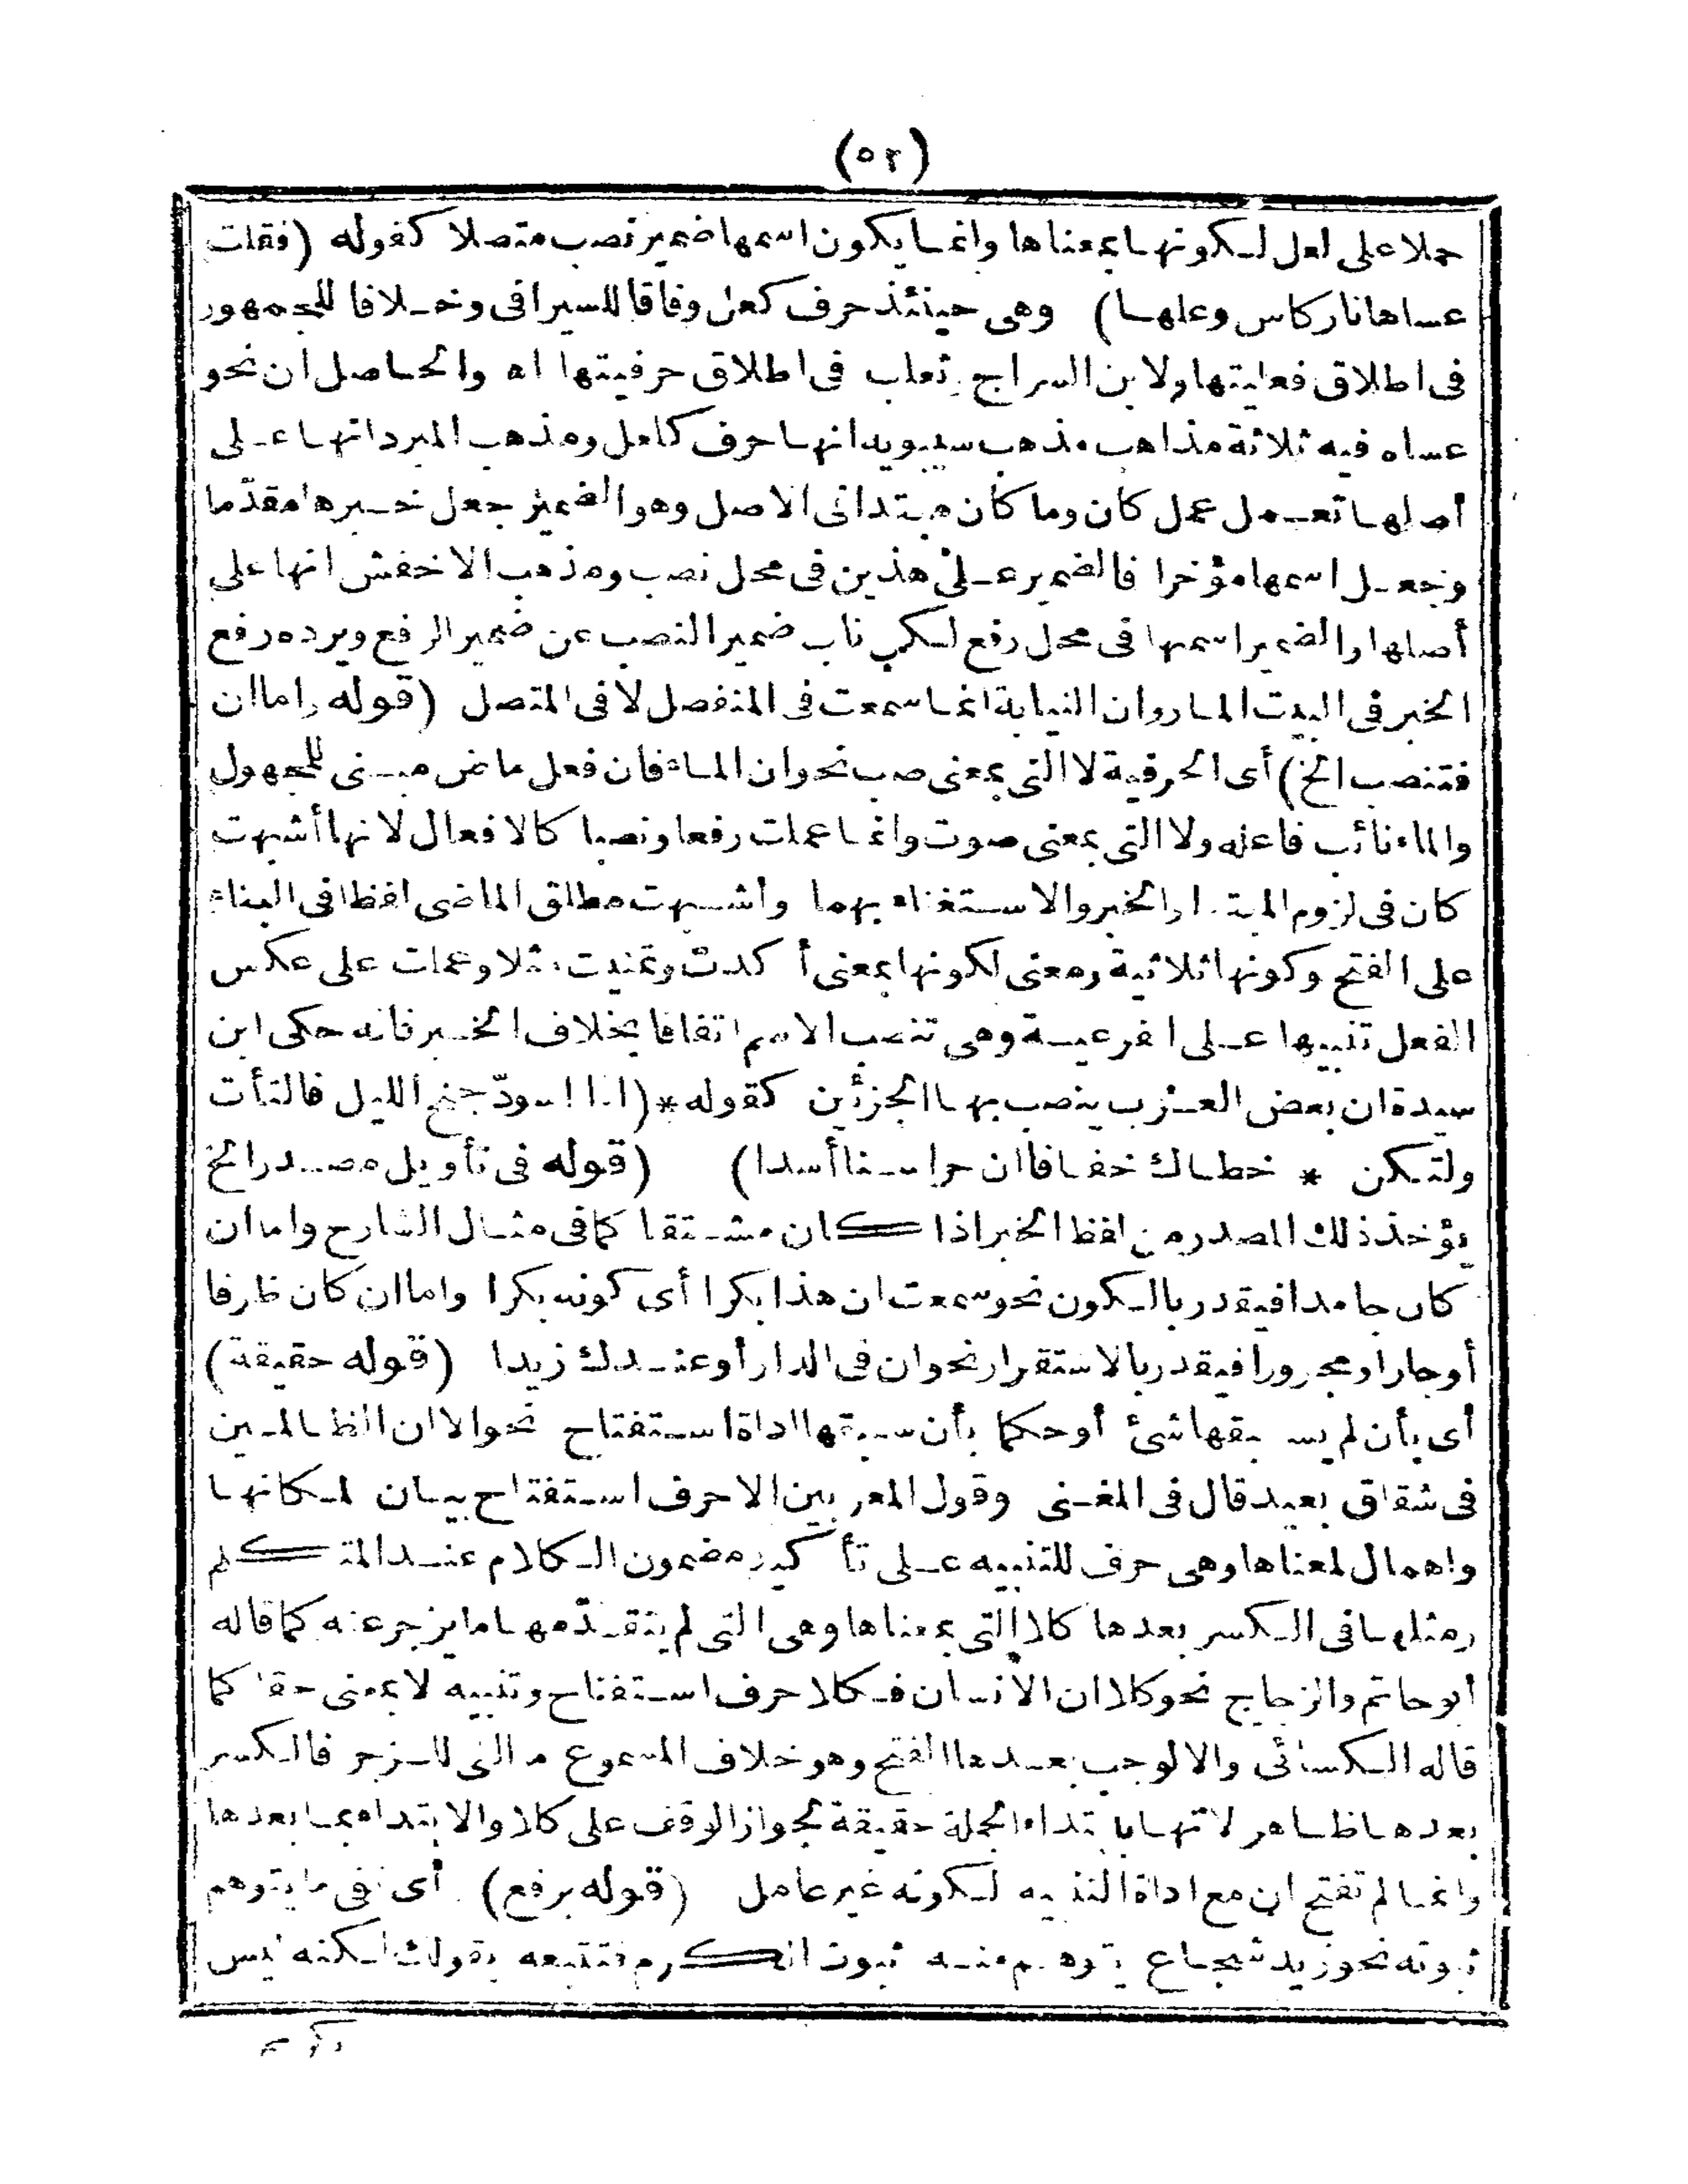 (٥٢)
حملا على لعل لكونها بمعناها وانما يكون اسمها ضمير نصب متصلا كقوله (فقلت
عساها نار كاس وعلها) وهى حينئذ حرف كعل وفاقا للسيرافى وخلافا للجمهور
فى اطلاق فعليتها ولابن السراج وثعلب فى اطلاق حرفيتها اه والحاصل ان نحو
عساه فيه ثلاثة مذاهب مذهب سيبويه انها حرف كلعل ومذهب المبرد انها على
أصلها تعمل عمل كان وما كان مبتدا فى الاصل وهو الضمير جعل خبرها مقدّما
وجعل اسمها مؤخرا فالضمير على هذين فى محل نصب ومذهب الاخفش انها على
أصلها والضمير اسمها فى محل رفع لكن ناب ضمير النصب عن ضمير الرفع ويرده رفع
الخبر فى البيت المار وان النيابة انما سمعت فى المنفصل لا فى المتصل (قوله واما ان
فتنصب الخ) أى الحرفية لا التى بمعنى صب نحو ان الماء فان فعل ماض مبنى للمجهول
والماء نائب فاعله ولا التى بمعنى صوت وانما عملت رفعا ونصبا كالافعال لانها أشبهت
كان فى لزوم المبتدا والخبر والاستغناء بهما وأشبهت مطلق الماضى لفظا فى البناء
على الفتح وكونها ثلاثية ومعنى لكونها بمعنى أكدت وتمنيت مثلا وعملت على عكس
الفعل تنبيها على الفرعية وهى تنصب الاسم اتفاقا بخلاف الخبر فانه حكى ابن
سيدة ان بعض العرب ينصب بها الجزئين كقوله * (اذا اسودّ جنح الليل فالتأت
ولتكن * خطاك خفافا ان حراسنا أسدا) (قوله فى تأويل مصدر الخ
يؤخذ ذلك المصدر من لفظ الخبر اذا كان مشتقا كما فى مثال الشارح واما ان
كان جامدا فيقدر بالكون نحو سمعت ان هذا بكرا أى كونه بكرا واما ان كان ظرفا
أو جارا ومجرورا فيقدر بالاستقرار نحو ان فى الدار أو عندك زيدا (قوله حقيقة)
أى بأن لم يسبقها شئ أو حكما بأن سبقها اداة استفتاح نحو الا ان الظالمين
فى شقاق بعيد قال فى المغنى وقول المعربين الا حرف استفتاح بيان لمكانها
واهمال لمعناها وهى حرف للتنبيه على تأكيد مضمون الكلام عند المتكلم
ومثلها فى الكسر بعدها كلا التى بمعناها وهى التى لم يتقدّمها ما يزجر عنه كما قاله
أبو حاتم والزجاج نحو كلا ان الانسان فكلا حرف استفتاح وتنبيه لا بمعنى حقا كما
قاله الكسائى والا لوجب بعدها الفتح وهو خلاف المسموع اما التى للزجر فالكسر
بعدها ظاهر لانها بابتداء الجملة حقيقة لجواز الوقف على كلا والابتداء بما بعدها
وانما لم تفتح ان مع اداة التنبيه لكونه غير عامل (قوله برفع) أى نفى ما يتوهم
ثبوته نحو زيد شجاع يتوهم منه ثبوت الكرم فتتبعه بقولك لكنه ليس